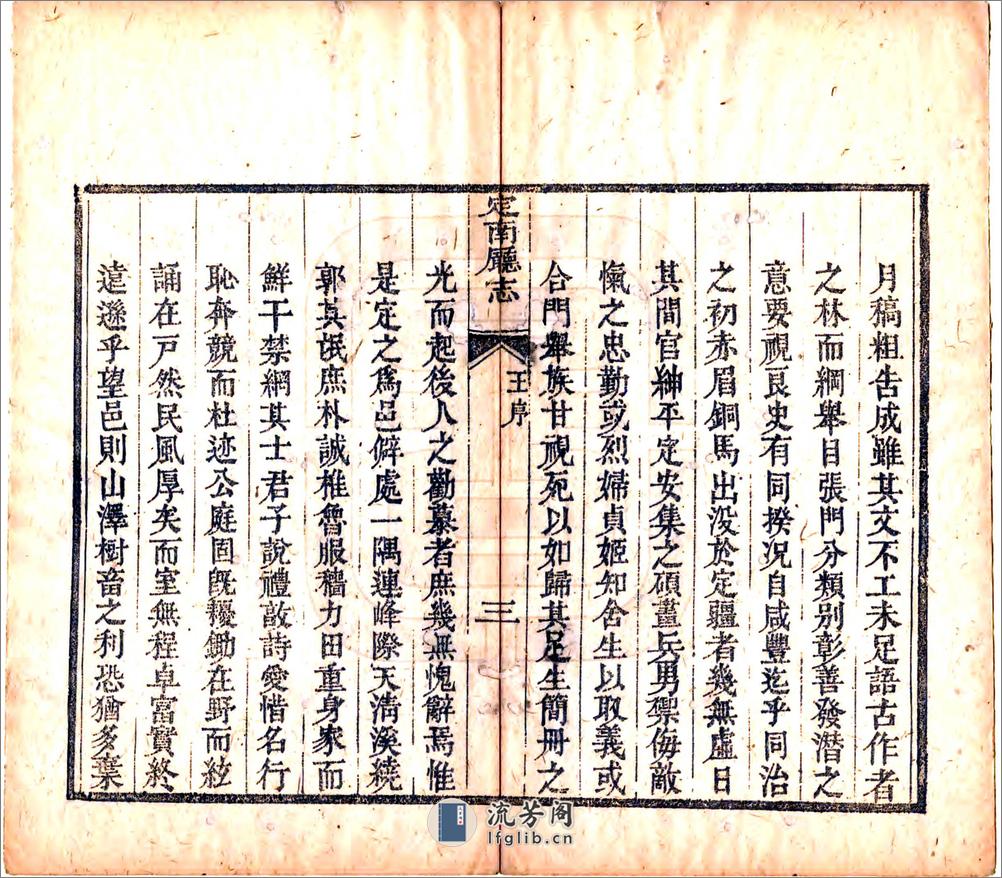 月稿粗告成雖其文不工未足語古作者
之林而綱舉目張門分類別彰善發潛之
意要視良史有同揆况自咸豐迄乎同治
之初赤眉銅馬出没於定疆者幾無虛日
其間官紳平定安集之碩畫兵男禦侮敵
愾之忠勤或烈婦貞姬知舍生以取義或
合門舉族甘視死以如歸其足生簡冊之
定南廳志
王序
三
光而起後人之勸慕者庶幾無愧辭焉惟
是定之爲邑僻處一隅連峰際天淸溪繞
郭其氓庶朴誠椎魯服穡力田重身家而
鮮干禁綱其士君子說禮敦詩愛惜名行
恥奔競而杜迹公庭固旣耰鋤在野而絃
誦在戸然民風厚矣而室無程卓富實終
遠遜乎望邑則山澤樹畜之利恐猶多棄
流芳阁
lfglib.cn